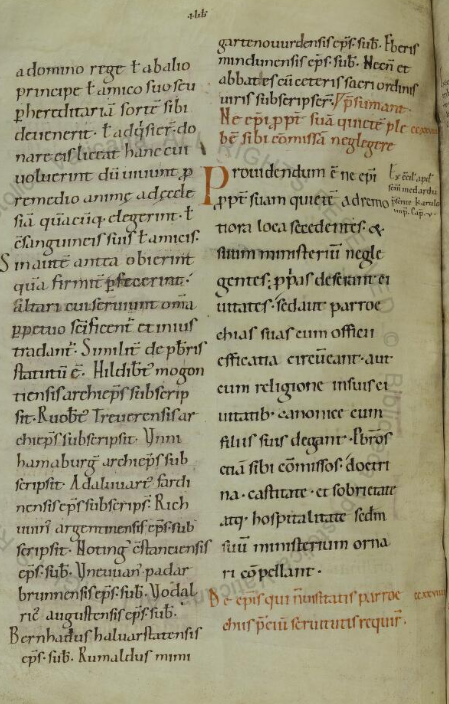 a domino rege ł ab alio
principe ł amico suo seu
p hereditariā sortē sibi
deuenerit· ł adqsier̄· do
nare eis liceat hanc cui
uoluerint dū uiuunt p
remedio animę ad eccle
siā quācūq; elegerint· ł
c̄sanguineis suis ł amicis·
Sin autē antea obierint
qua firmit̄ pfecerint·
altari cui seruiunt om̄a
ppetuo sc̄ificent̄ et in ius
tradant̄· Similit̄ de pb̄ris
statutū ē· Hildib̄t mogon
tiensis archiep̄s subscrip
sit· Ruob̄t Treuerensis ar
chiep̄s subscripsit· Vnni
hamaburḡ archiep̄s sub
scripsit· Adaluuart̄ fardi
nensis ep̄s subscrips̄· Rich
uuin argentinensis ep̄s sub
scripsit· Noting c̄stanciensis
ep̄s sub̄· Vneuuan padar
brunnensis ep̄s sub̄· Vodal
ric̄ augustensis ep̄s sub̄·
Bernhadus haluarstatensis
ep̄s· sub̄· Rumaldus mimi
gartenouurdensis ep̄s· sub̄· Eb̄eris
mindunensis ep̄s· sub̄· Necn̄ et
abbates cū ceteris sacri ordinis
uiris subscripser̄·
Ne ep̄i ppt̄ suā quietē ple
bē sibi comissā neglegere
Prouidendum ē ne ep̄i
ppt̄ suam quietē ad remo
tiora loca secedentes· &
suum ministeriū negle
gentes· pp̄as deserant ci
uitates· sed aut parroe
chias suas cum offici
efficatia circūeant· aut
cum religione in suis ci
uitatib· canonice cum
filiis suis degant· Pb̄ros
etiā sibi cōmissos· doctri
na· castitate· et sobrietate
atq; hospitalitate sedm
suū ministerium orna
ri cōpellant·
De ep̄is qui n̄ uisitatis parroe
chiis p̄ciū seruitutis requir̄·